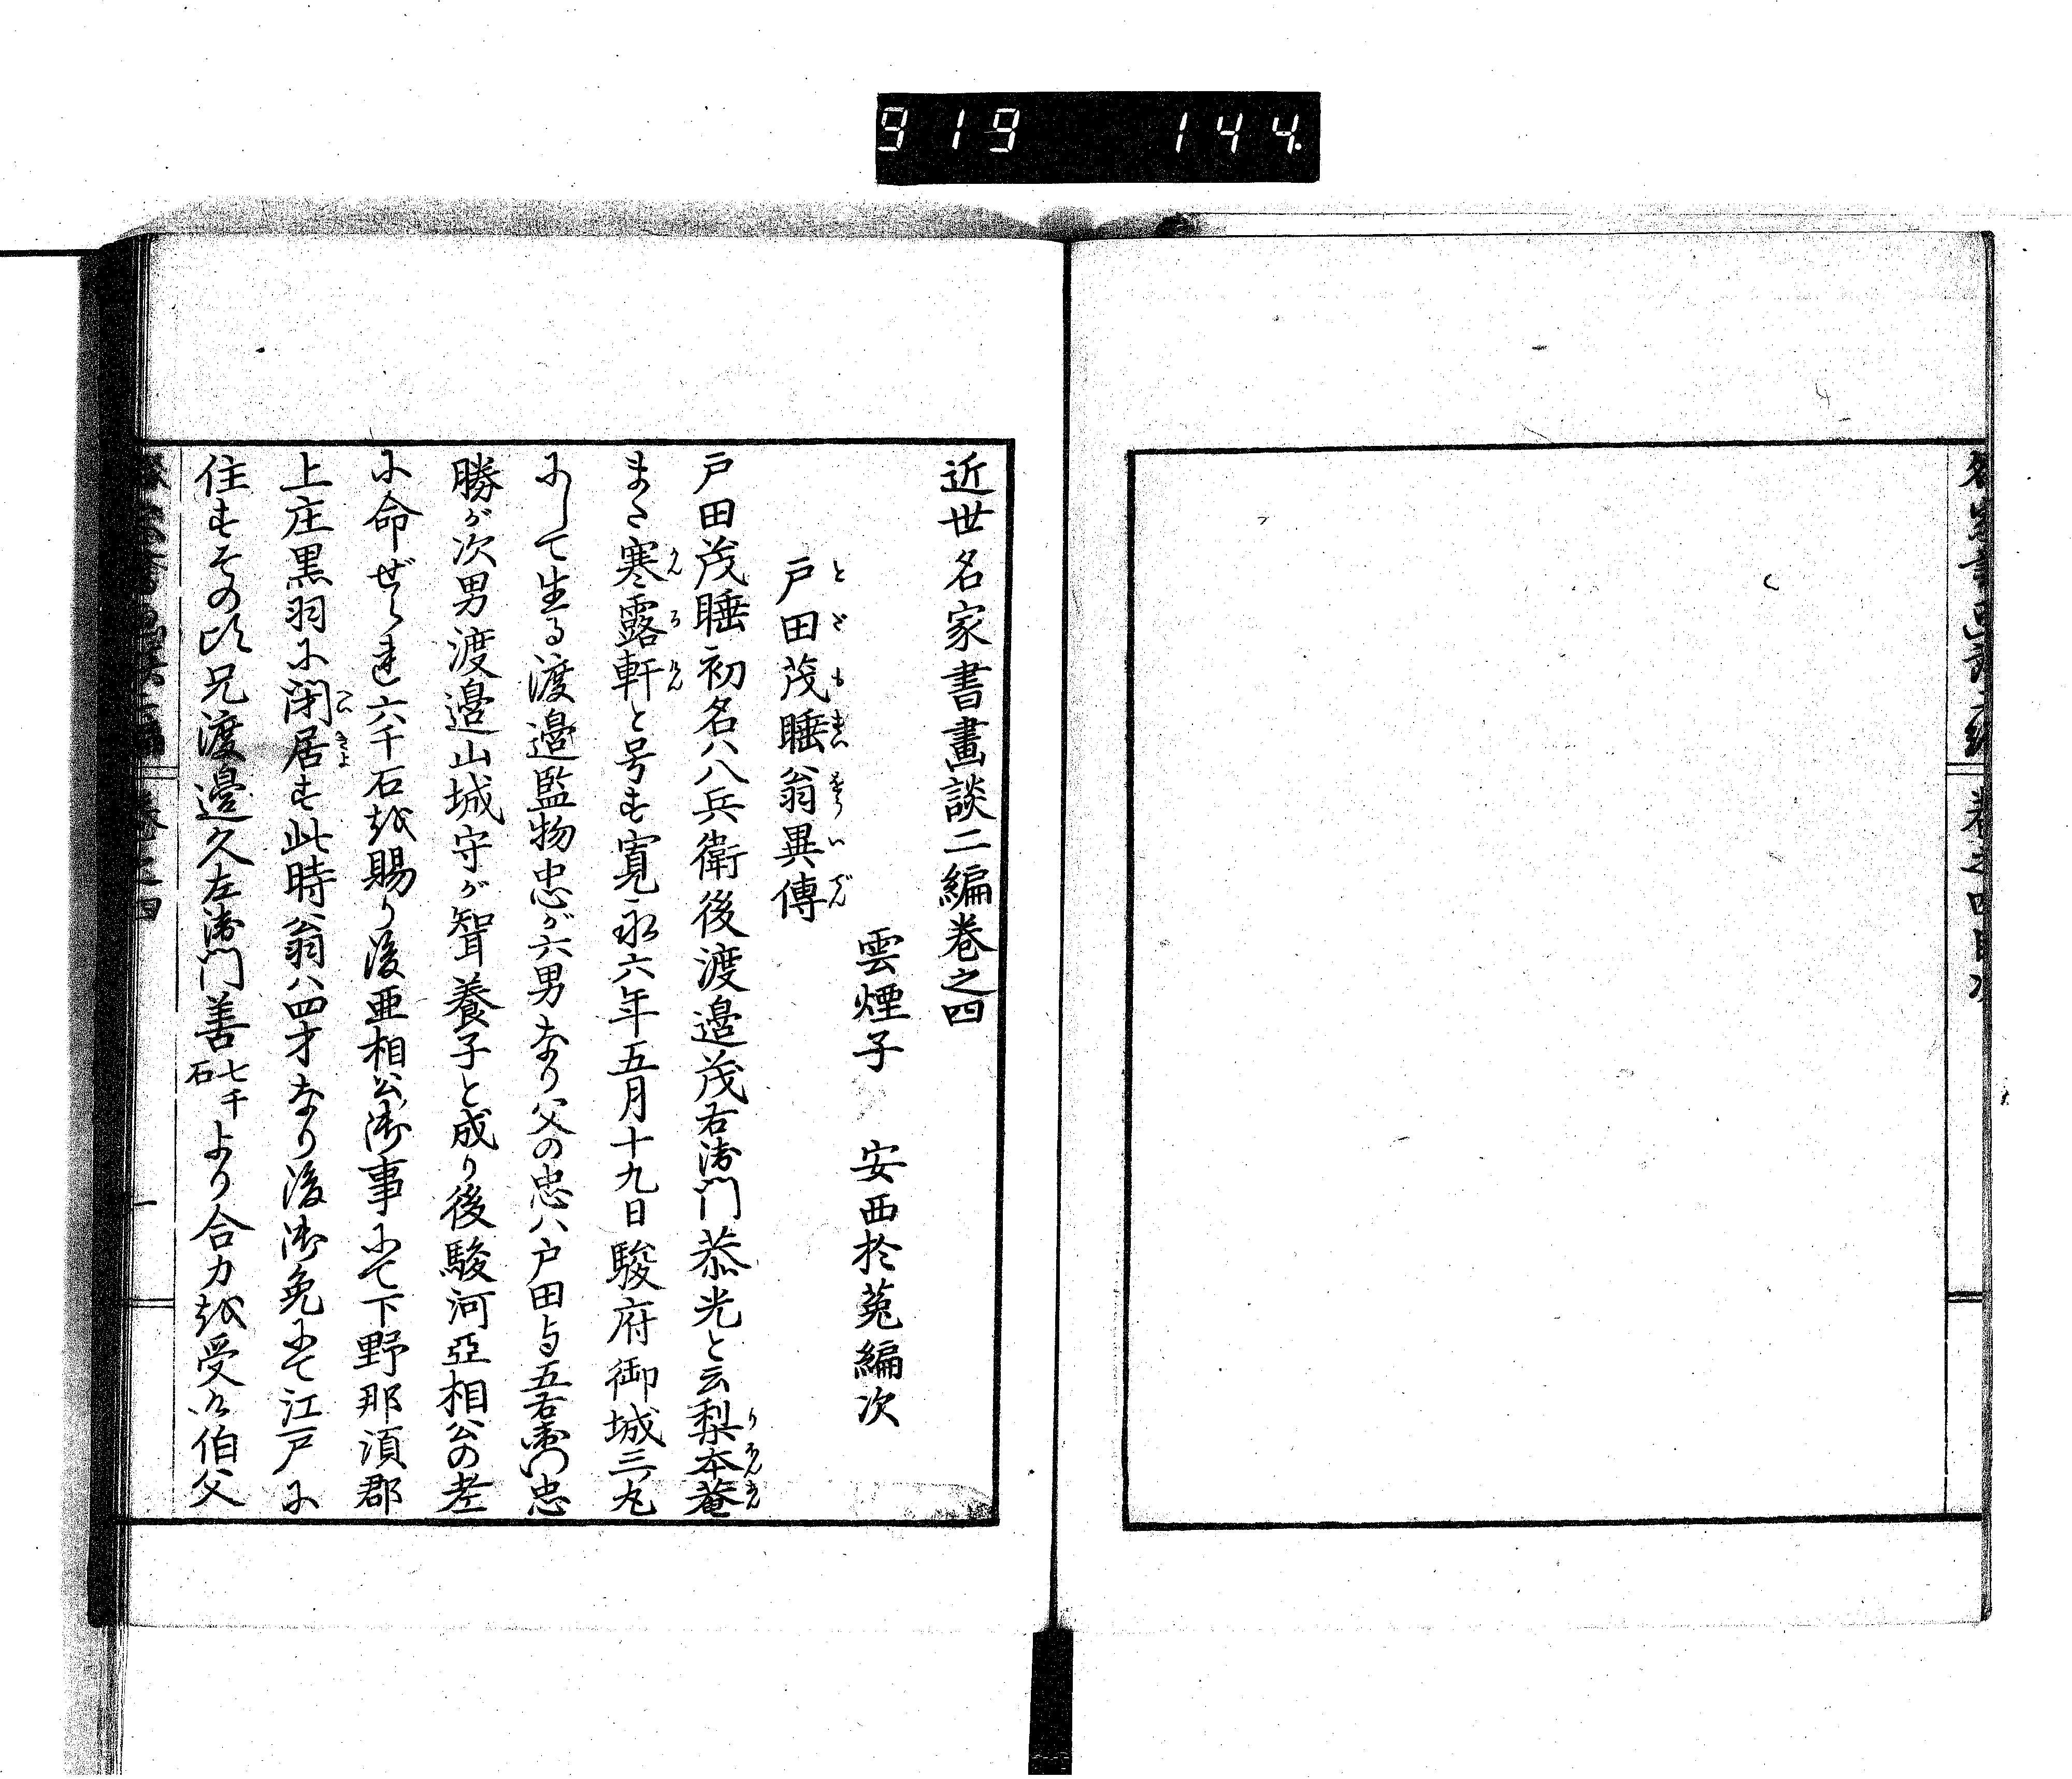 919 144.
近世名家書畫談二編卷之四
雲煙子 安西於菟編次
戸田茂睡翁異傳
戸田茂睡初名八八兵衛後渡邉茂右衛門恭光と云梨本菴
また寒露軒と号す寛永六年五月十九日駿府御城三ノ丸
にして生る渡邉監物忠が六男なり父の忠ハ戸田与五右衛門忠
勝が次男渡邉山城守が聟養子と成り後駿河亞相公の老
に命ぜられ六千石を賜り後亜相公御事にて下野那須郡
上庄黒羽に閉居す此時翁ハ四才なり後御免にて江戸に
住すその比兄渡邉久左衛門善七千石より合力を受け伯父